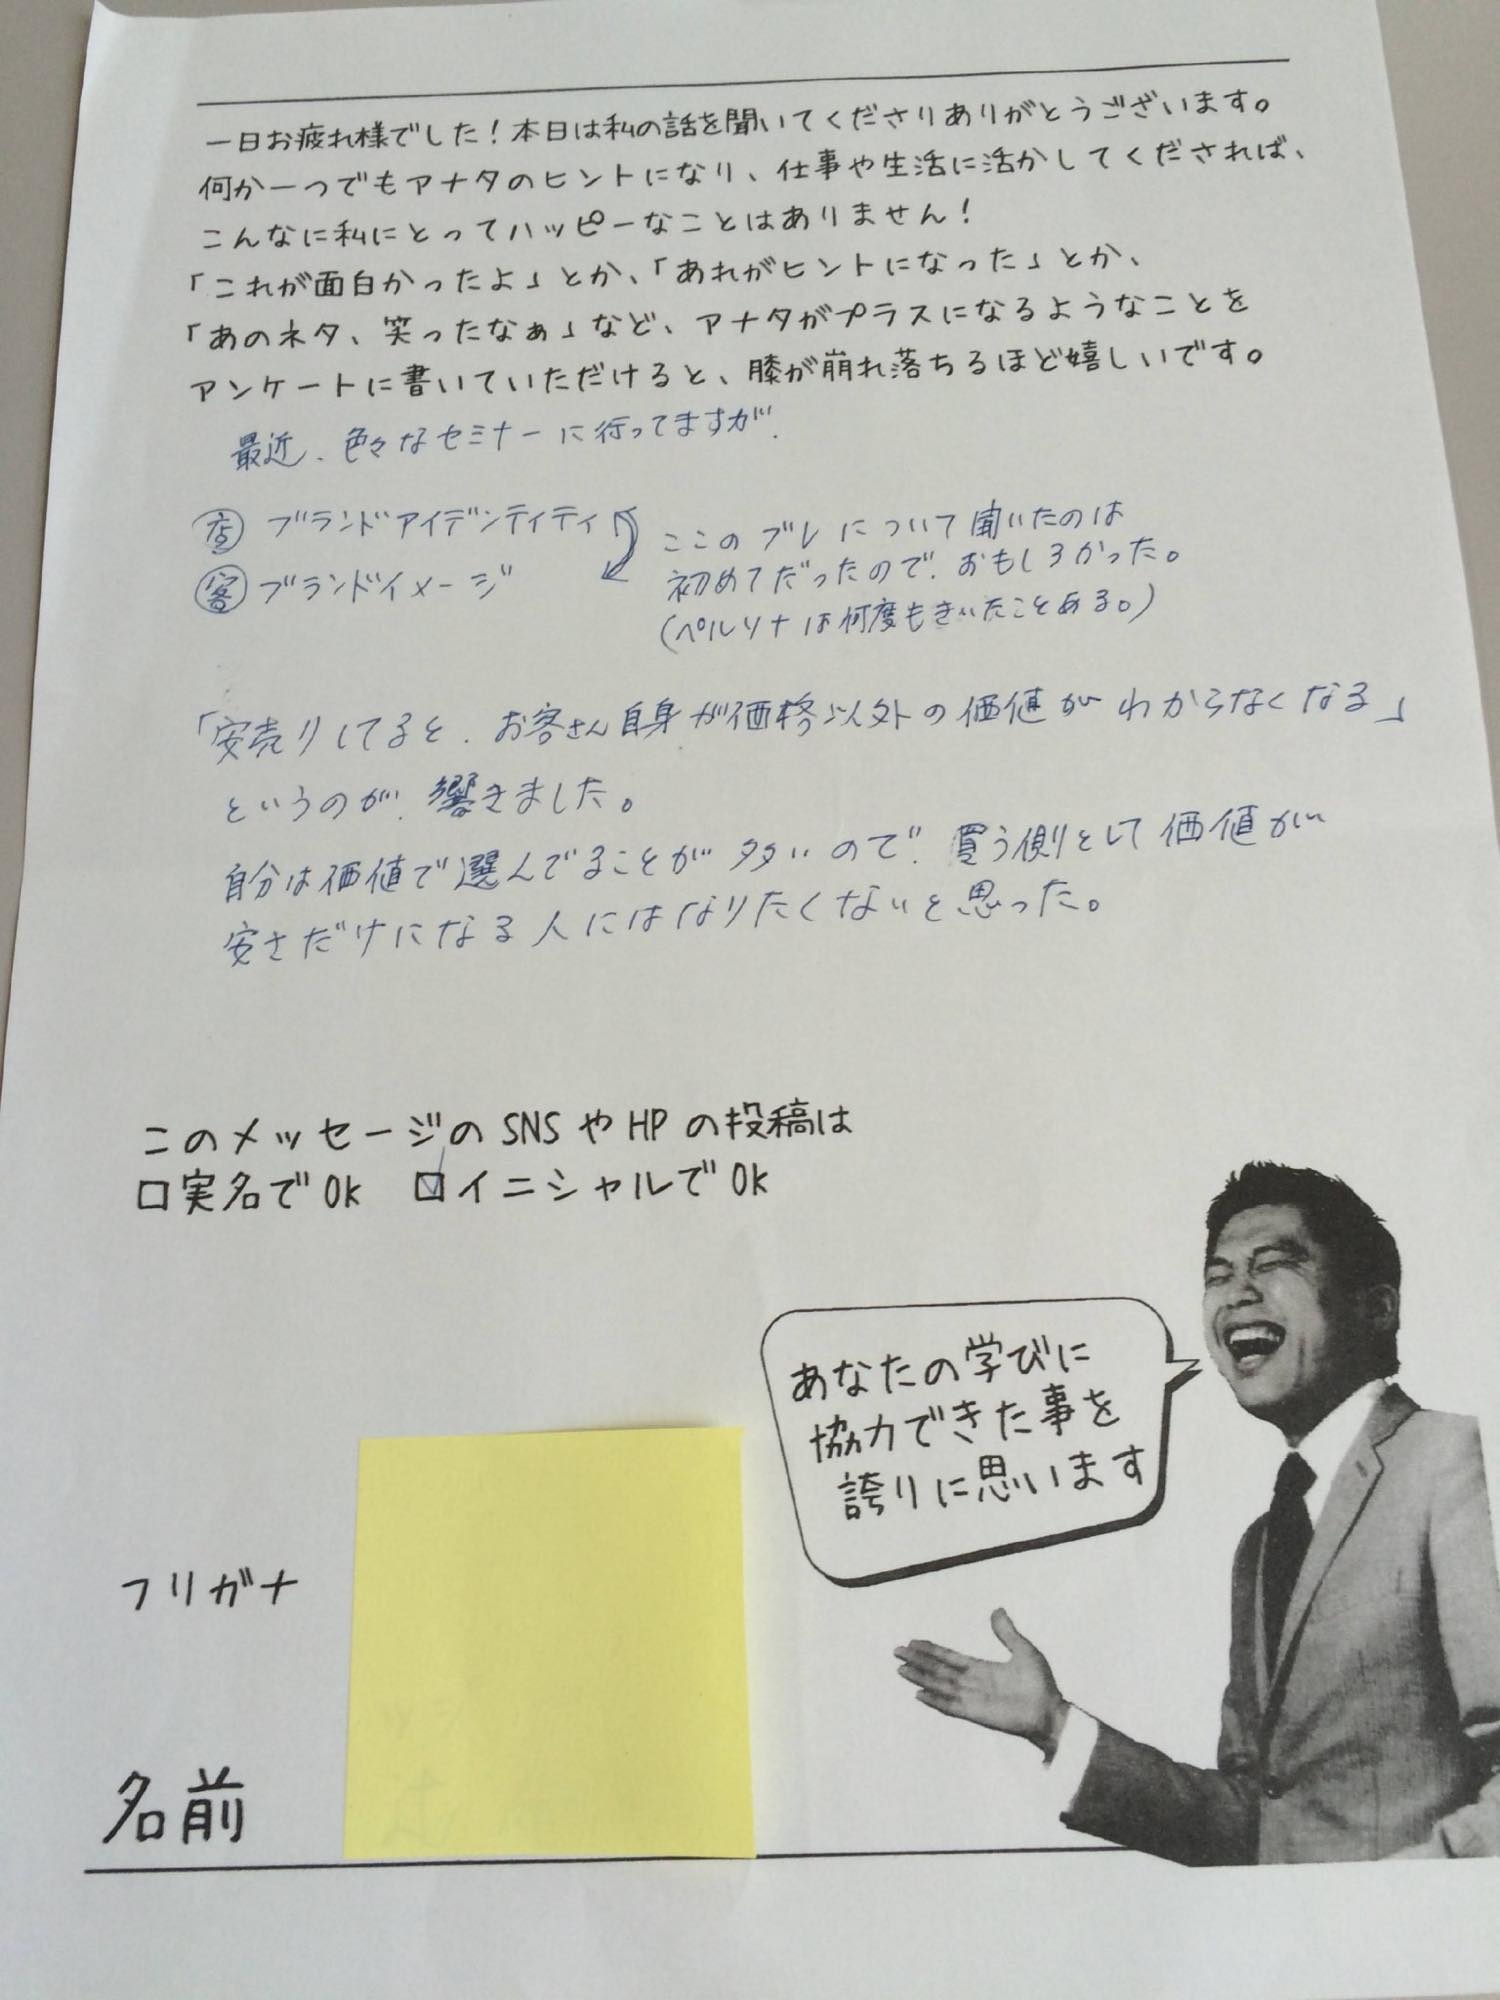 一日お疲れ様でした！本日は私の話を聞いてくださりありがとうございます。
何か一つでもアナタのヒントになり、仕事や生活に活かしてくだされば、
こんなに私にとってハッピーなことはありません！
「これが面白かったよ」とか、「あれがヒントになった」とか、
「あのネタ、笑ったなぁ」など、アナタがプラスになるようなことを
アンケートに書いていただけると、膝が崩れ落ちるほど嬉しいです。
最近、色々なセミナーに行ってますが、
店 ブランドアイデンティティ
客 ブランドイメージ
ここのブレについて聞いたのは
初めてだったので、おもしろかった。
(ペルソナは何度もきいたことある。)
「安売りしてると、お客さん自身が価格以外の価値がわからなくなる」
というのが、響きました。
自分は価値で選んでることが多いので、買う側として価値が
安さだけになる人にはなりたくないと思った。
このメッセージのSNSやHPの投稿は
□実名でOK ☑イニシャルでOK
あなたの学びに
協力できた事を
誇りに思います
フリガナ
名前